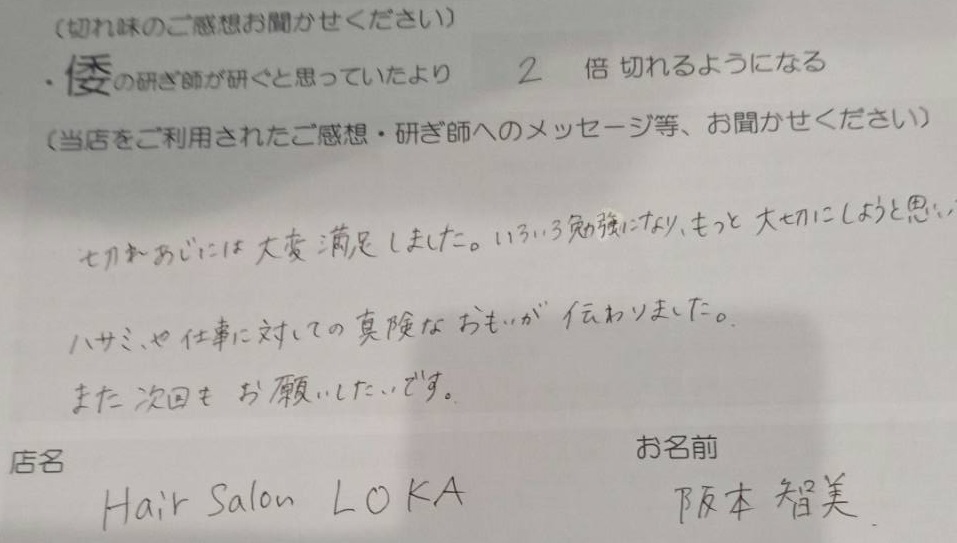 (切れ味のご感想お聞かせください)
・倭の研ぎ師が研ぐと思っていたより 2 倍 切れるようになる
(当店をご利用されたご感想・研ぎ師へのメッセージ等、お聞かせください)
切れあじには大変満足しました。いろいろ勉強になり、もっと大切にしようと思い
ハサミや仕事に対しての真険なおもいが伝わりました。
また次回もお願いしたいです。
店名 お名前
Hair Salon LOKA 阪本 智美